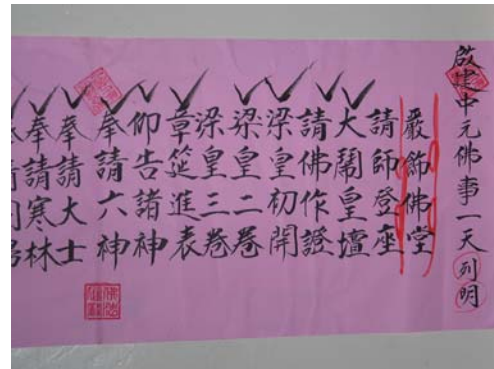 啟建中元佛事一天列明
嚴飾佛堂
請師登座
大鬧皇壇
請佛作證
梁皇初開
梁皇二卷
梁皇三卷
章筵進表
仰告諸神
奉請六神
奉請大士
奉請寒林